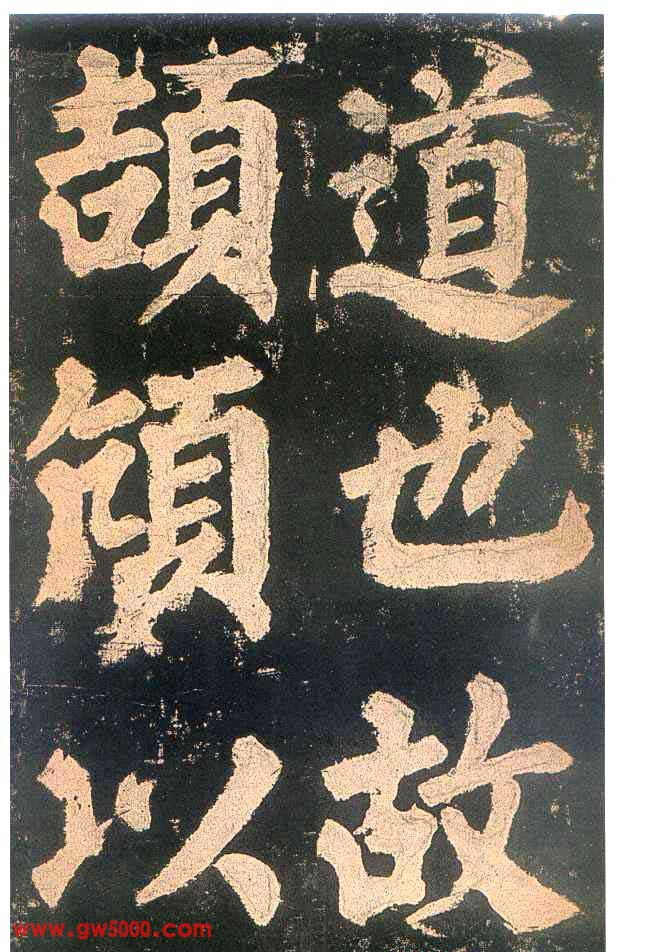 道也故
頡頏以
www.gw5000.com